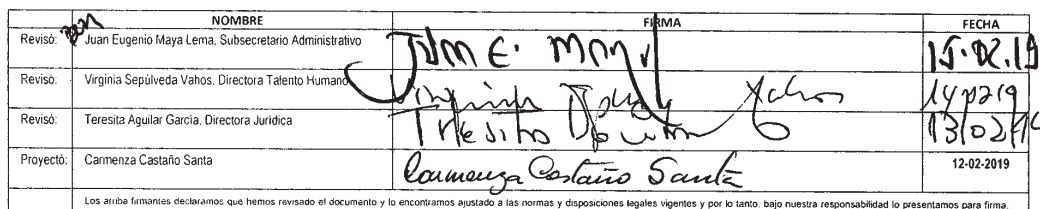 NOMBRE FIRMA FECHA
Revisó: Juan Eugenio Maya Lema, Subsecretario Administrativo Juan E. Maya 15.02.19
Revisó: Virginia Sepúlveda Vahos, Directora Talento Humano Virginia Vahos 140219
Revisó: Teresita Aguilar García, Directora Jurídica Teresita Aguilar 13/02/19
Proyectó: Carmenza Castaño Santa Carmenza Castaño Santa 12-02-2019
Los arriba firmantes declaramos que hemos revisado el documento y lo encontramos ajustado a las normas y disposiciones legales vigentes y por lo tanto, bajo nuestra responsabilidad lo presentamos para firma.